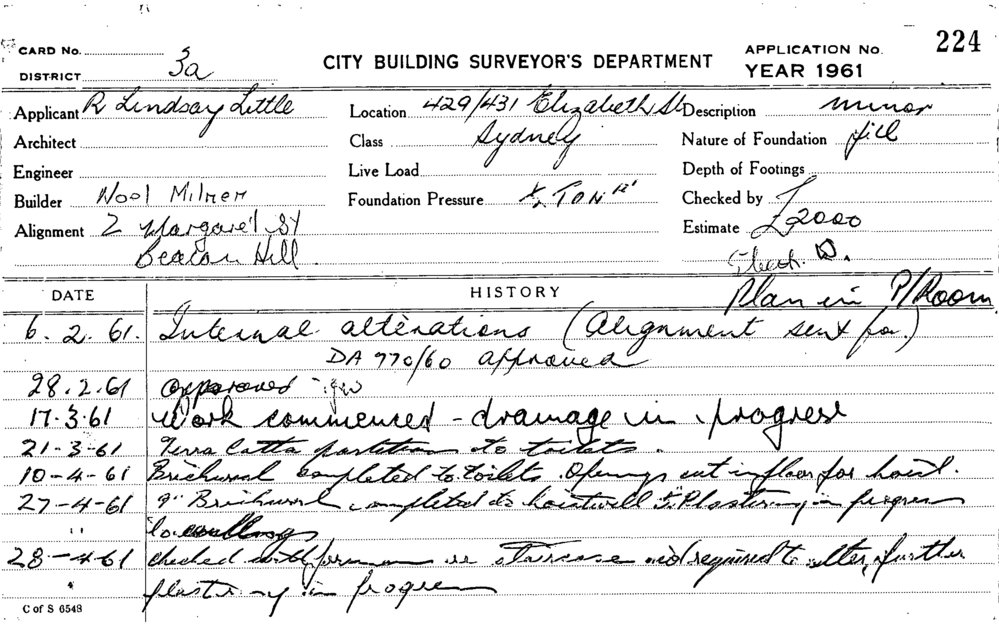 CARD No.
DISTRICT 3a
CITY BUILDING SURVEYOR'S DEPARTMENT
APPLICATION No. 224
YEAR 1961
Applicant R Lindsay Little
Location 429/431 Elizabeth St
Description minor
Architect
Class Sydney
Nature of Foundation fill
Engineer
Live Load
Depth of Footings
Builder Noel Milner
Foundation Pressure TON
Checked by
Alignment 2 Margaret St
Estimate £2000
Beacon Hill
Plan in P/Room
DATE
HISTORY
6.2.61. Internal alterations (Alignment sent for.)
DA 770/60 approved
28.2.61 approved
17.3.61 Work commenced - drainage in progress
21-3-61 Terra Cotta partitions to toilets.
10-4-61 Brickwork completed to toilets. Openings cut in floor for hoist.
27-4-61 9" Brickwork completed to Plastering in progress
"
28-4-61 checked with foreman re staircase not required to alter, further
" plastering in progress
C of S 6548